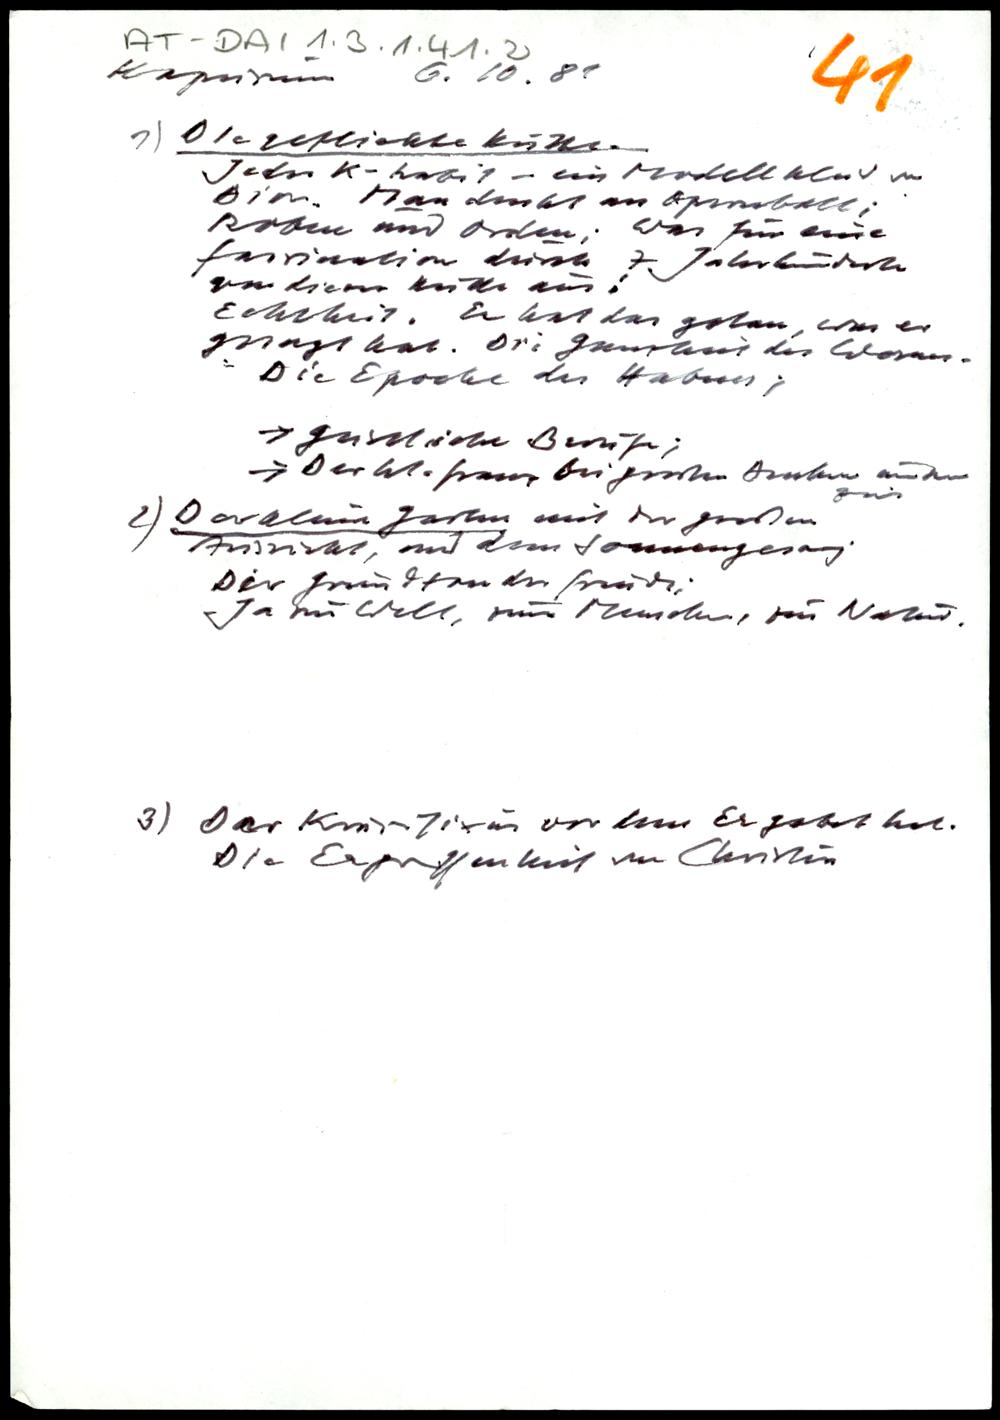 AT-DAI 1.3.1.41.2
41
Kapuziner 6. 10. 81
1) Die geflickte Kutte.
Jeder K-habit - ein Modellkleid von
Dior. Man denkt an Opernball;
Roben und Orden; Was für eine
Faszination durch 7 Jahrhunderte
von dieser Kutte aus!
Echtheit. Er hat das getan, was er
gesagt hat. Die des
Die Epoche des Habens;
→ geistliche Berufe;
→ Der hl. Franz bei
2) Der kleine Garten mit der großen
Aussicht, und dem Sonnengesang
Der Grundton der Freude;
- Ja zur Welt, zum Menschen, zur Natur.
3) Das Kruzifixus vor dem Er gebetet hat.
Die Ergriffenheit von Christus